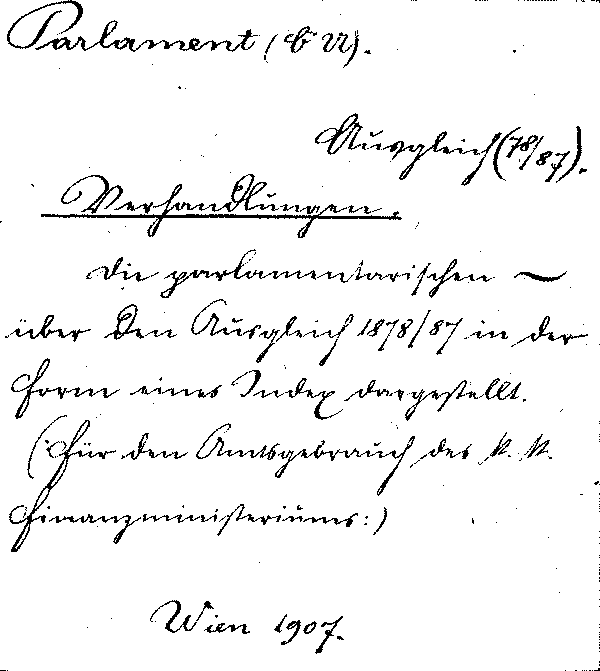 Parlament (C U).
Ausgleich (78/87).
Verhandlungen.
Die parlamentarischen —
über den Ausgleich 1878/87 in der
Form eines Index dargestellt.
(:Für den Amtsgebrauch des k. k.
Finanzministeriums:)
Wien 1907.